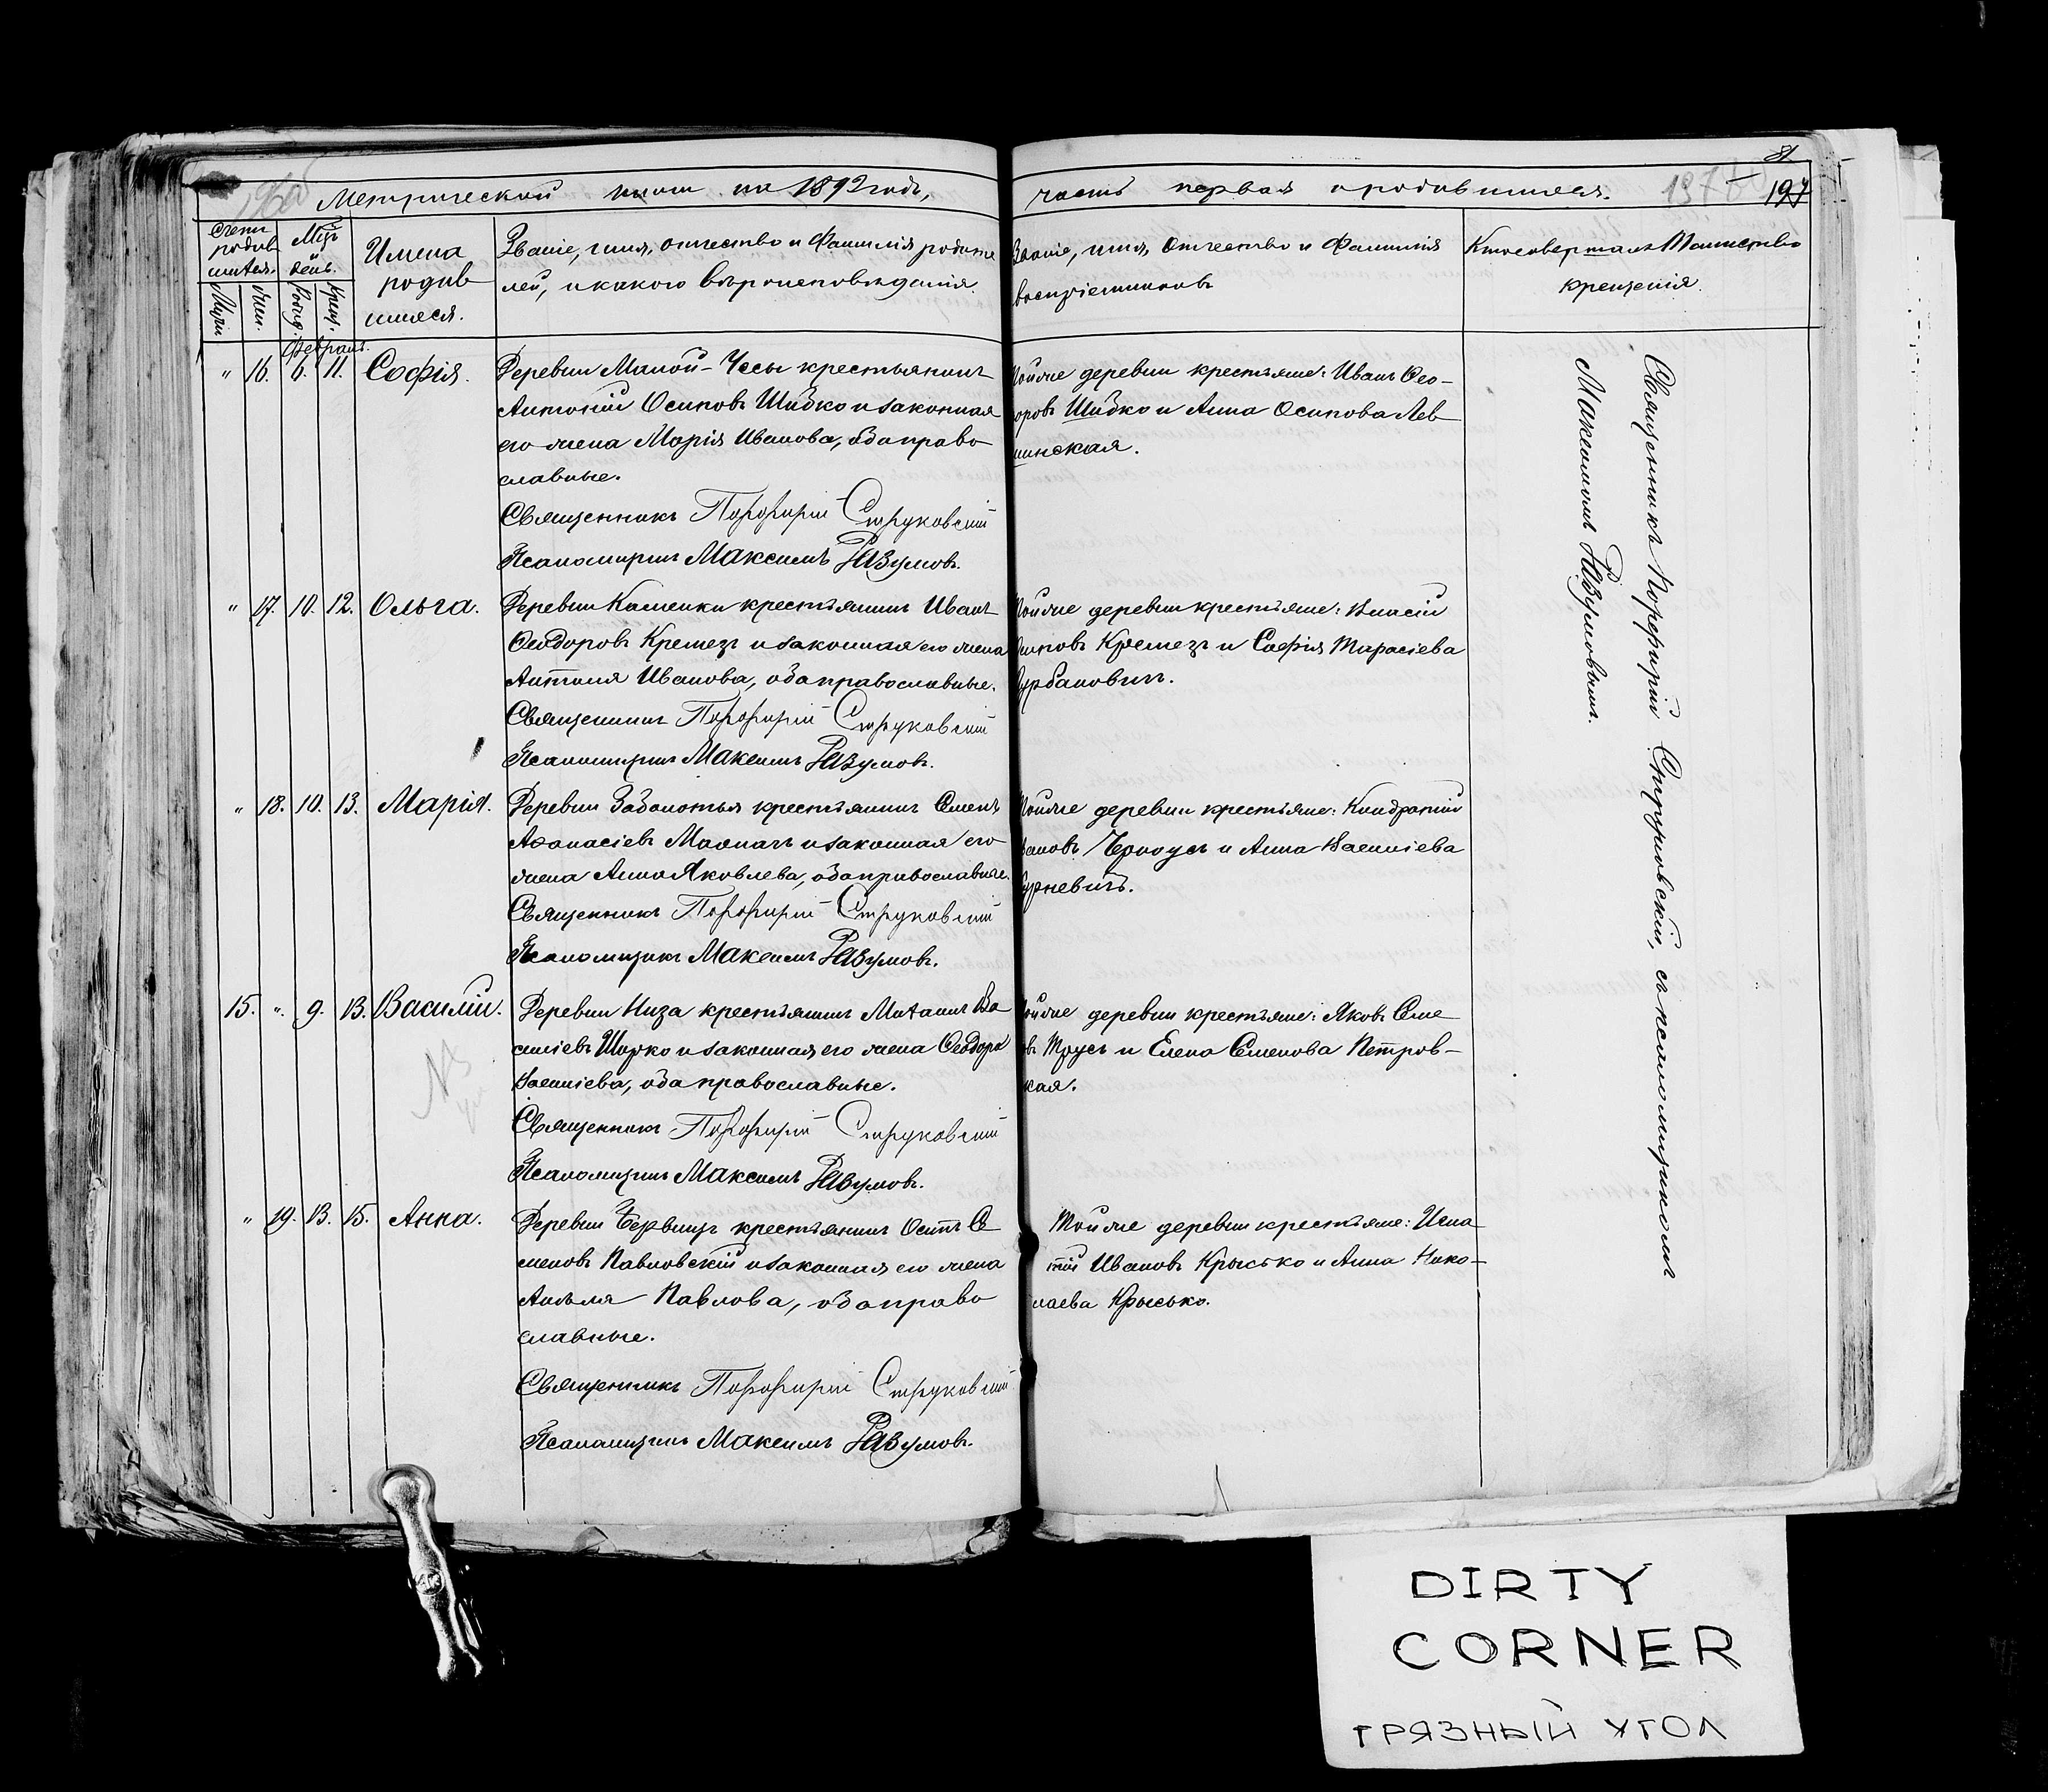 81
Метрической книги на 1892 годъ,
часть первая о родившихся.
197
Счетъ родив
шихся.
Муж.
Жен.
Мѣц. и день.
Рожд.
Крещ.
Имена
родив
шихся.
Званіе, имя, отчество и фамилія родите
лей, и какого вѣроисповѣданія.
Званіе, имя, отчество и фамилія
воспріемниковъ
Кто совершалъ Таинство
крещенія.
Февраль.
" 16. 6. 11. Софія.
Деревни Малой-Чесы крестьянинъ
Антоній Осиповъ Шидко и законная
его жена Марія Иванова, оба право
славные.
Священникъ Порфирій Струковскій
Псаломщикъ Максимъ Разумовъ.
Тойже деревни крестьяне: Иванъ Ѳео-
доровъ Шидко и Анна Осипова Лев
шинская.
" 17. 10. 12. Ольга.
Деревни Каменки крестьянинъ Иванъ
Ѳеодоровъ Кремезъ и законная его жена
Антонія Иванова, оба православные.
Священникъ Порфирій Струковскій
Псаломщикъ Максимъ Разумовъ.
Тойже деревни крестьяне: Власій
Осиповъ Кремезъ и Софія Тарасіева
Курбановичъ.
" 18. 10. 13. Марія.
Деревни Заболотья крестьянинъ Семенъ
Аѳанасіевъ и законная его
жена Анна Яковлева, оба православные.
Священникъ Порфирій Струковскій
Псаломщикъ Максимъ Разумовъ.
Тойже деревни крестьяне: Кондратій
Ивановъ Черноусъ и Анна Василіева
15. " 9. 13. Василій.
Деревни Низа крестьянинъ Михаилъ Ва
силіевъ Шорко и законная его жена Ѳеодора
Василіева, оба православные.
Священникъ Порфирій Струковскій
Псаломщикъ Максимъ Разумовъ.
Тойже деревни крестьяне: Яковъ Семе
овъ Трусъ и Елена Семенова Петров-
ская.
" 19. 13. 15. Анна.
Деревни крестьянинъ Осипъ Се
меновъ Павловскій и законная его жена
Павлова, оба право
славные.
Священникъ Порфирій Струковскій
Псаломщикъ Максимъ Разумовъ.
Тойже деревни крестьяне: Игна
тій Ивановъ Крысько и Анна Нико-
лаева Крысько.
Священникъ Порфирій Струковскій, съ псаломщикомъ
Максимомъ Разумовымъ.
DIRTY
CORNER
ГРЯЗНЫЙ УГОЛ